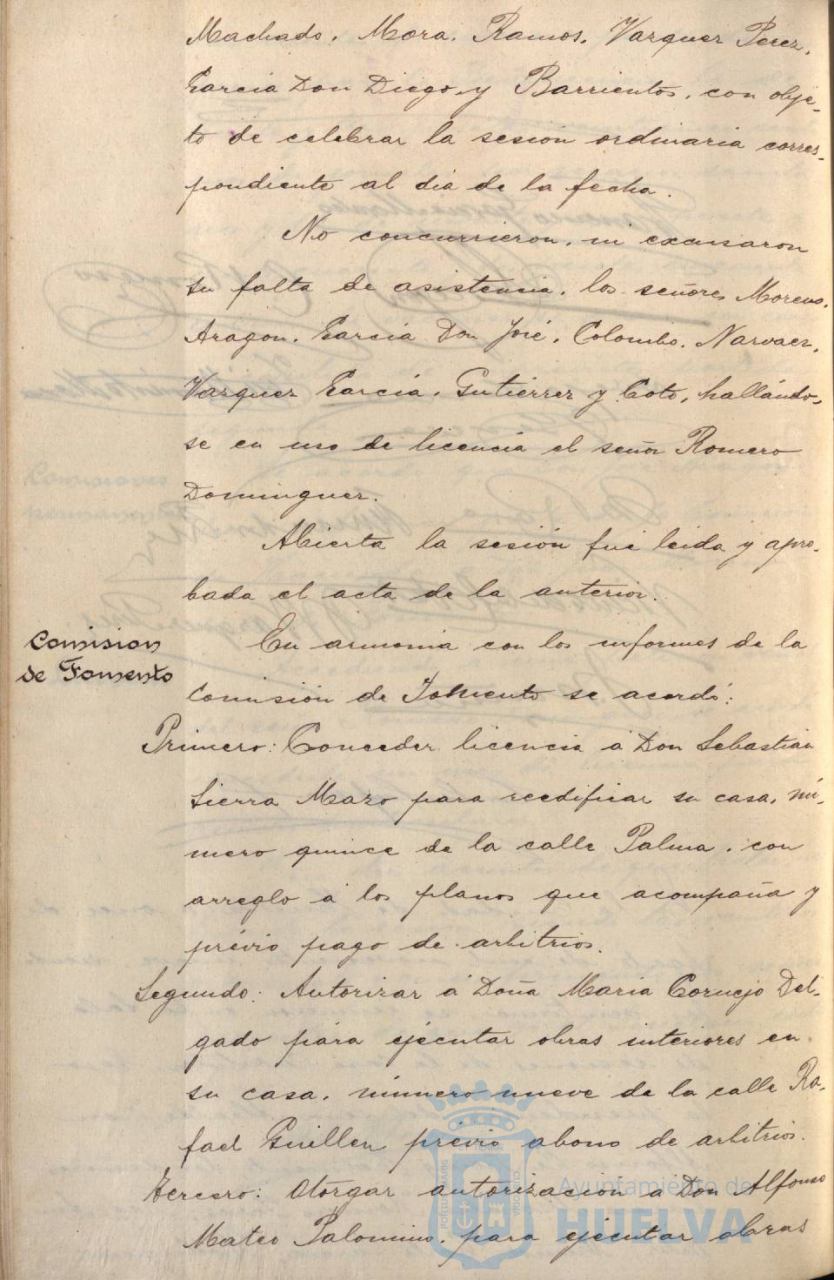 Machado, Mora, Ramos, Varquer Perez,
Garcia Don Diego, y Barrientos, con obje-
to de celebrar la sesión ordinaria corres-
pondiente al dia de la fecha.
No concurrieron, ni excusaron
su falta de asistencia, los señores Moreno,
Aragon, Garcia Don José, Colombo, Narvaez,
Varquez Garcia, Gutiérrez y Coto, hallándo-
se en uso de licencia el señor Romero
Dominguez.
Abierta la sesión fué leida y apro-
bada el acta de la anterior.
Comision
de Fomento
En armonia con los informes de la
Comisión de Fomento se acordó:
Primero: Conceder licencia á Don Sebastián
Sierra Mazo para reedificar su casa, nú-
mero quince de la calle Palma, con
arreglo á los planos que acompaña y
prévio pago de arbitrios.
Segundo: Autorizar á Doña Maria Cornejo Del-
gado para ejecutar obras interiores en
su casa, número nueve de la calle Ra-
fael Guillen prévio abono de arbitrios.
Tercero: Otorgar autorización á Don Alfonso
Mateo Palomino, para ejecutar obras
Ayuntamiento de
HUELVA